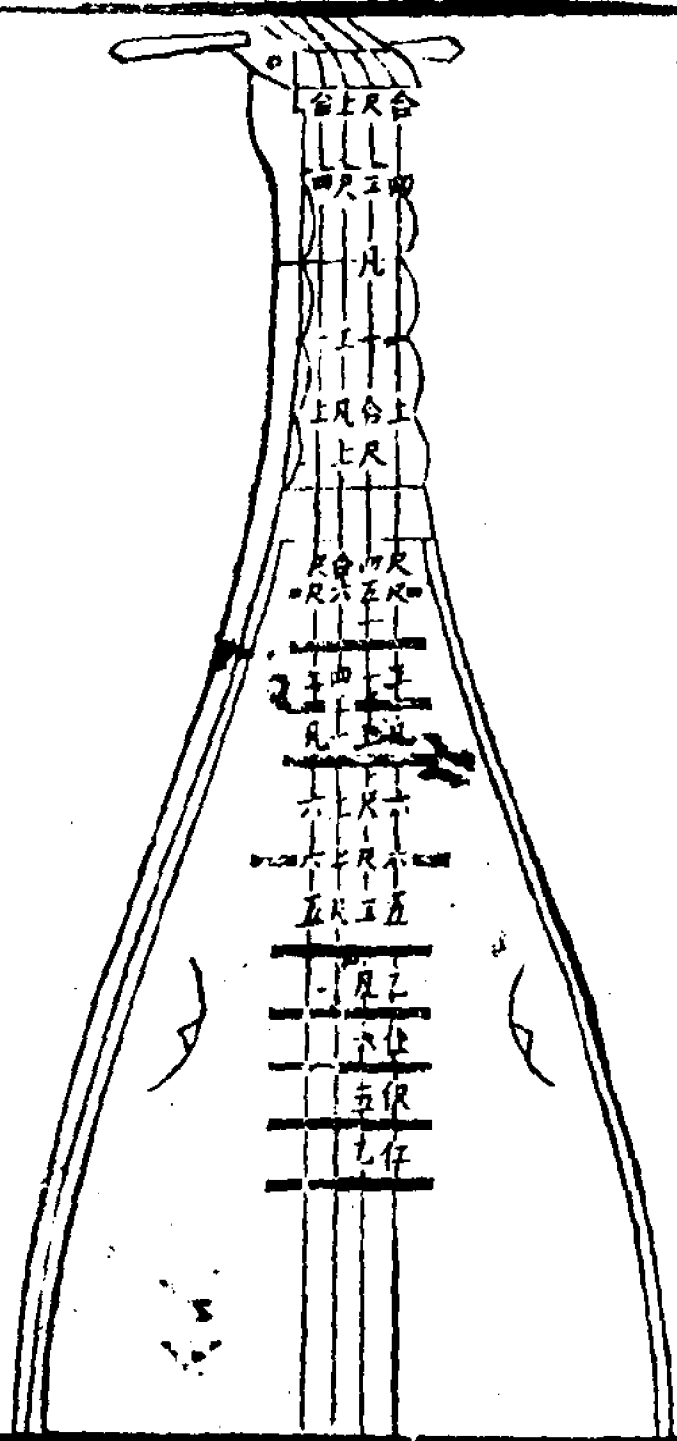 合上尺合
四尺工四
凡
一工一
上凡合上
上尺
尺合四尺
尺六五尺
一
工四一工
凡一上凡
六上尺六
六上尺六
五尺工五
凡乙
六仩
五伬
乙仜